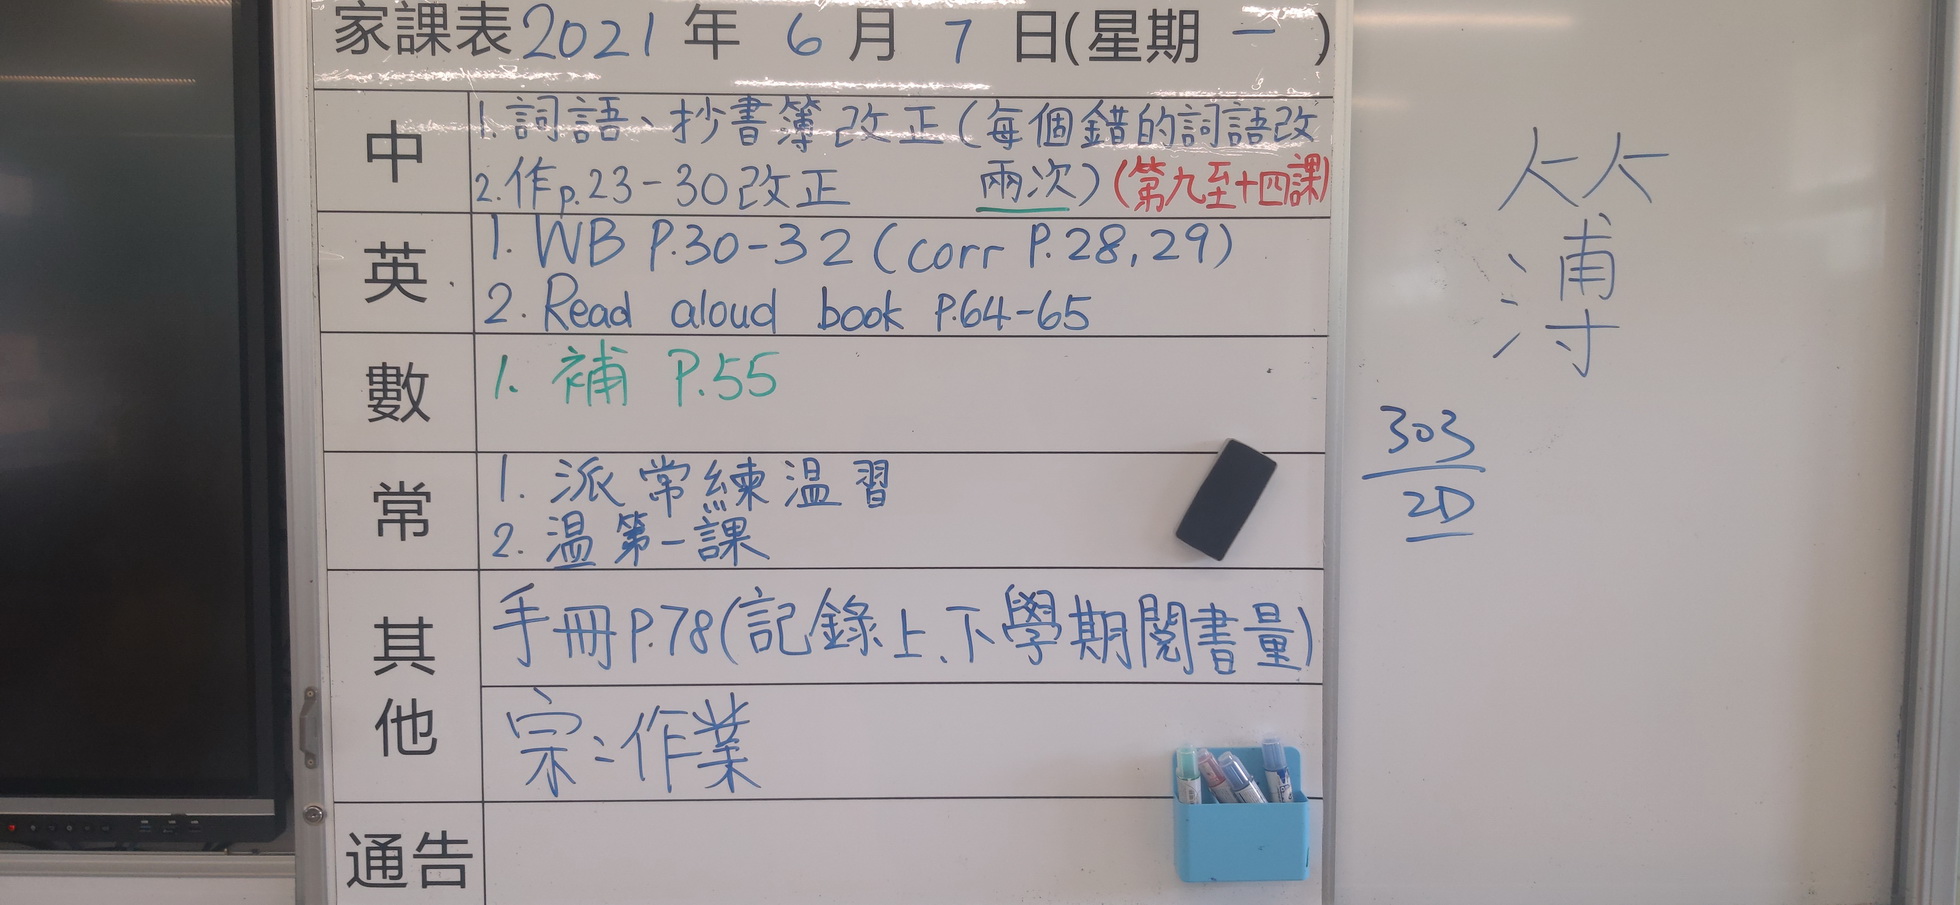 家課表2021年 6月 7日(星期一)
中
1.詞語、抄書簿改正(每個錯的詞語改
2.作p.23-30改正 兩次)(第九至十四課)
英
1. WB P.30-32 (corr P.28,29)
2. Read aloud book P.64-65
數
1. 補 P.55
常
1. 派常練温習
2. 温第一課
其他
手冊P.78(記錄上、下學期閱書量)
宗:作業
通告
簿
303
2D